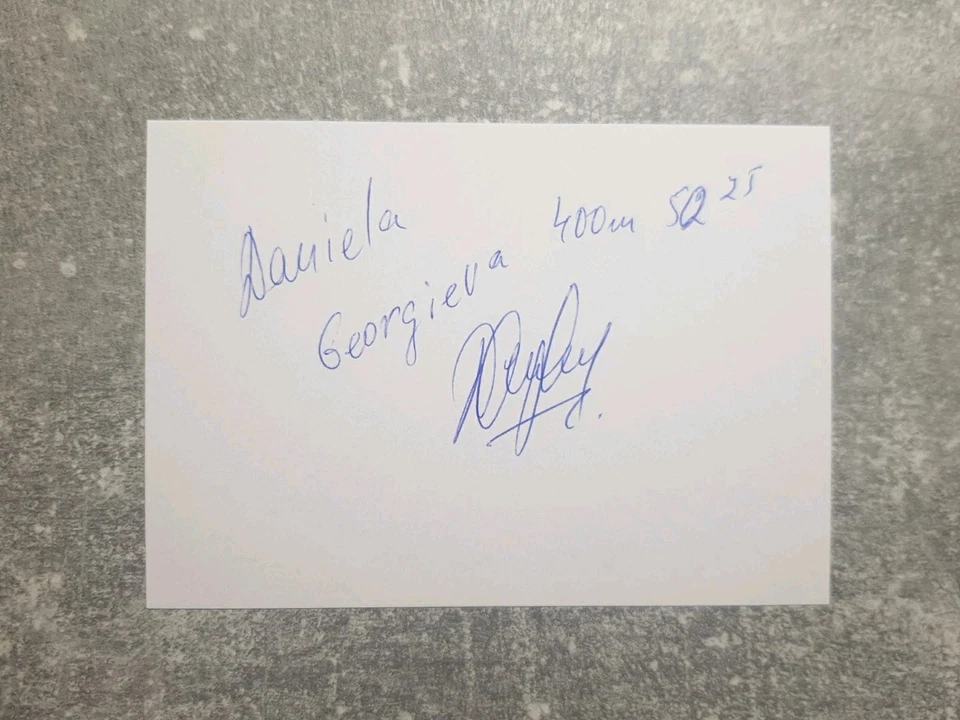 Daniela
Georgieva 400m 52 25